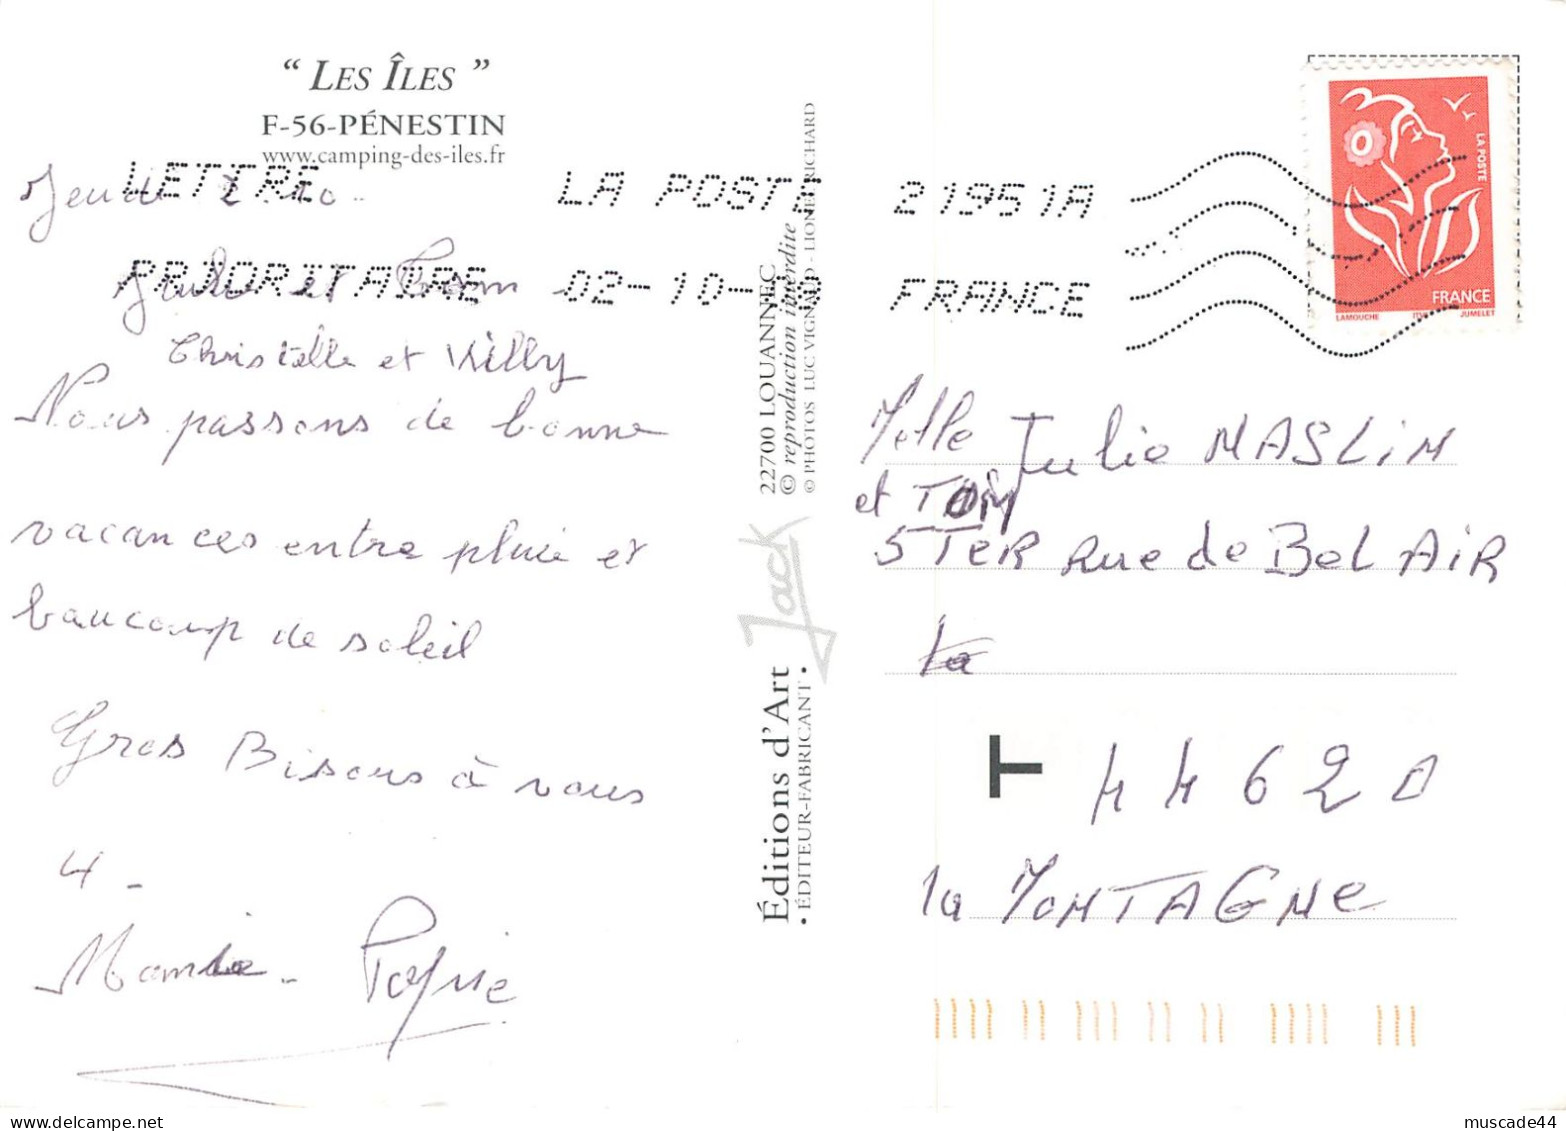 “ LES ÎLES ”
F-56-PÉNESTIN
www.camping-des-iles.fr
LETTRE
PRIORITAIRE
LA POSTE
02-10-
21951A
FRANCE
LA POSTE
FRANCE
LAMOUCHE
JUMELET
Jeudi 2
Julie et Tom
Christelle et Willy
Nous passons de bonne
vacances entre pluie et
beaucoup de soleil
Gros Bisous à vous
4 -
Mamie - Papie
22700 LOUANNEC
© reproduction interdite
© PHOTOS LUC VIGNAUD - LIONEL RICHARD
Jack
Éditions d’Art
• ÉDITEUR-FABRICANT •
Melle Julie MASLIN
et TOM
5 TER Rue de BEL AIR
la
T 44620
la MONTAGNE
muscade44